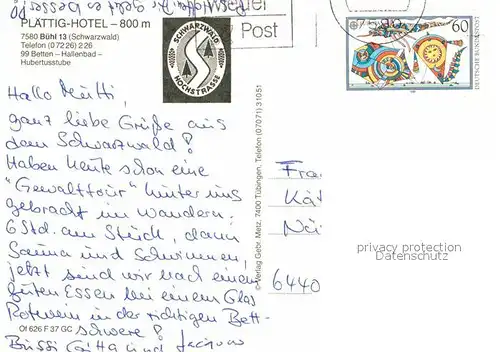 PLÄTTIG-HOTEL – 800 m
7580 Bühl 13 (Schwarzwald)
Telefon (0 72 26) 2 26
99 Betten – Hallenbad –
Hubertusstube
SCHWARZWALD
HOCHSTRASSE
Post
DEUTSCHE BUNDESPOST
60
Hallo Mutti,
ganz liebe Grüße aus
dem Schwarzwald!
Haben heute schon eine
"Gewalttour" hinter uns
gebracht im Wandern:
6 Std. am Stück, dann
Sauna und Schwimmen,
jetzt sind wir nach einem
guten Essen bei einem Glas
Rotwein in der richtigen Bett-
schwere!
Bussi Gitta und
© Verlag Gebr. Metz, 7400 Tübingen, Telefon (07071) 31051
Of 626 F 37 GC
Fra
Kät
Nü
6440
privacy protection
Datenschutz